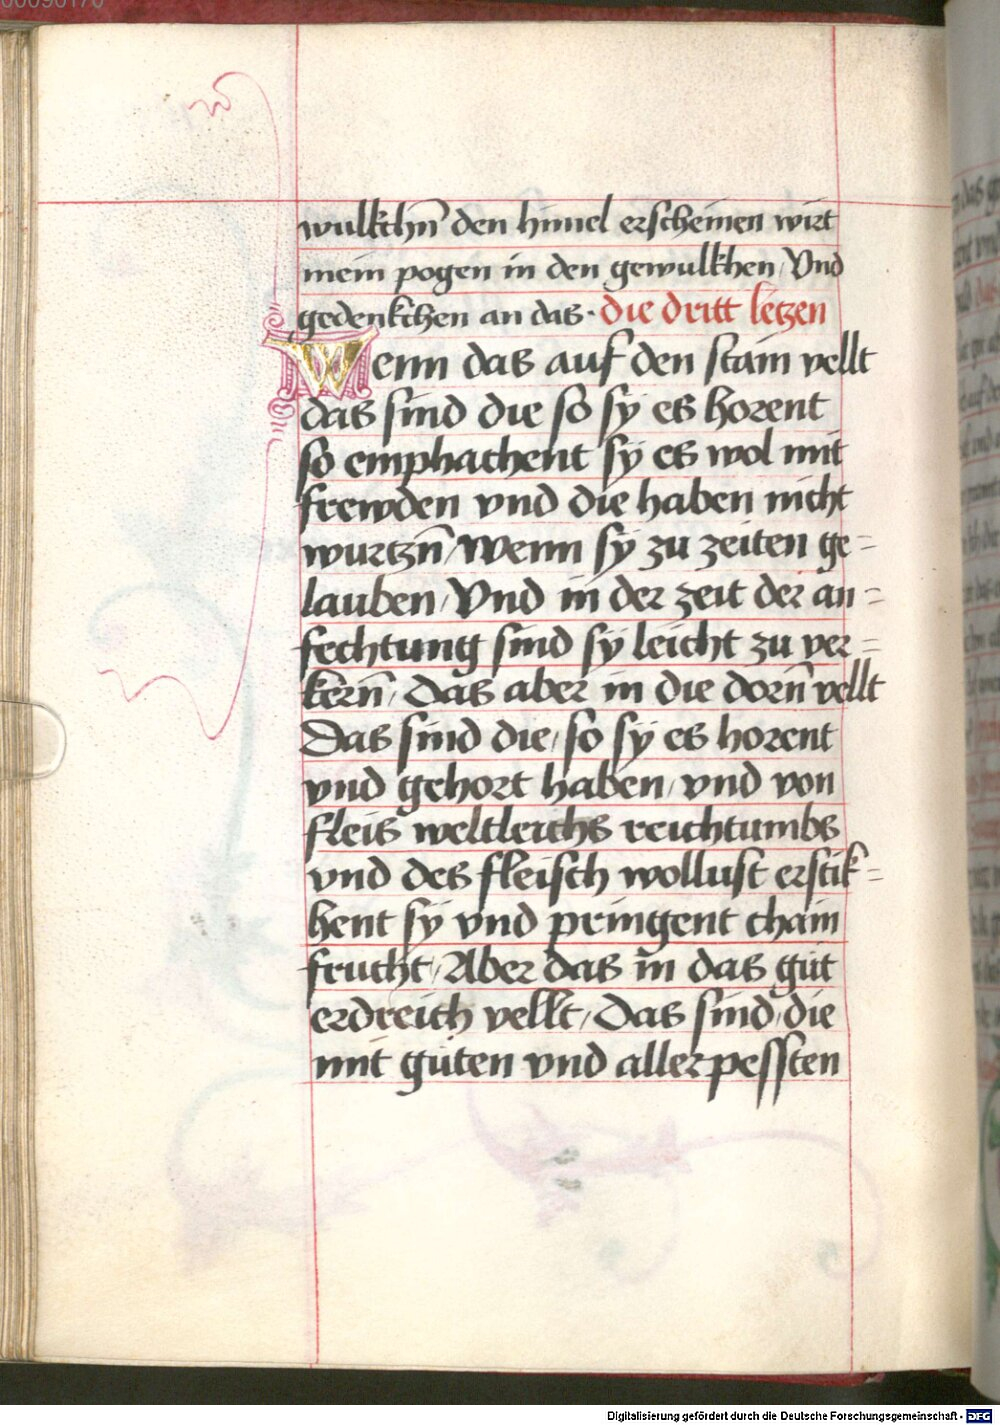 00090170
wulkchn̄ den himel erscheinen wirt
mein pogen in den gewulkhen/ Vnd
gedenkchen an das· die dritt letzen
Wenn das auf den stain vellt
das sind die so sÿ es horent
so emphachent sÿ es wol mit
frewden vnd die haben nicht
wurtzn̄/ Wenn sÿ zu zeiten ge=
lauben/ Vnd in der zeit der an=
fechtung sind sÿ leicht zu ver=
kern̄/ Das aber in die dorn̄ vellt
Das sind die/ so sÿ es horent
vnd gehort haben/ vnd von
fleis weltleichs reichtumbs
vnd des fleisch wollust erstik=
hent sÿ vnd pringent chain
frucht/ Aber das in das gut
erdreich vellt/ Das sind/ die
mit guten vnd allerpessten
Digitalisierung gefördert durch die Deutsche Forschungsgemeinschaft - DFG